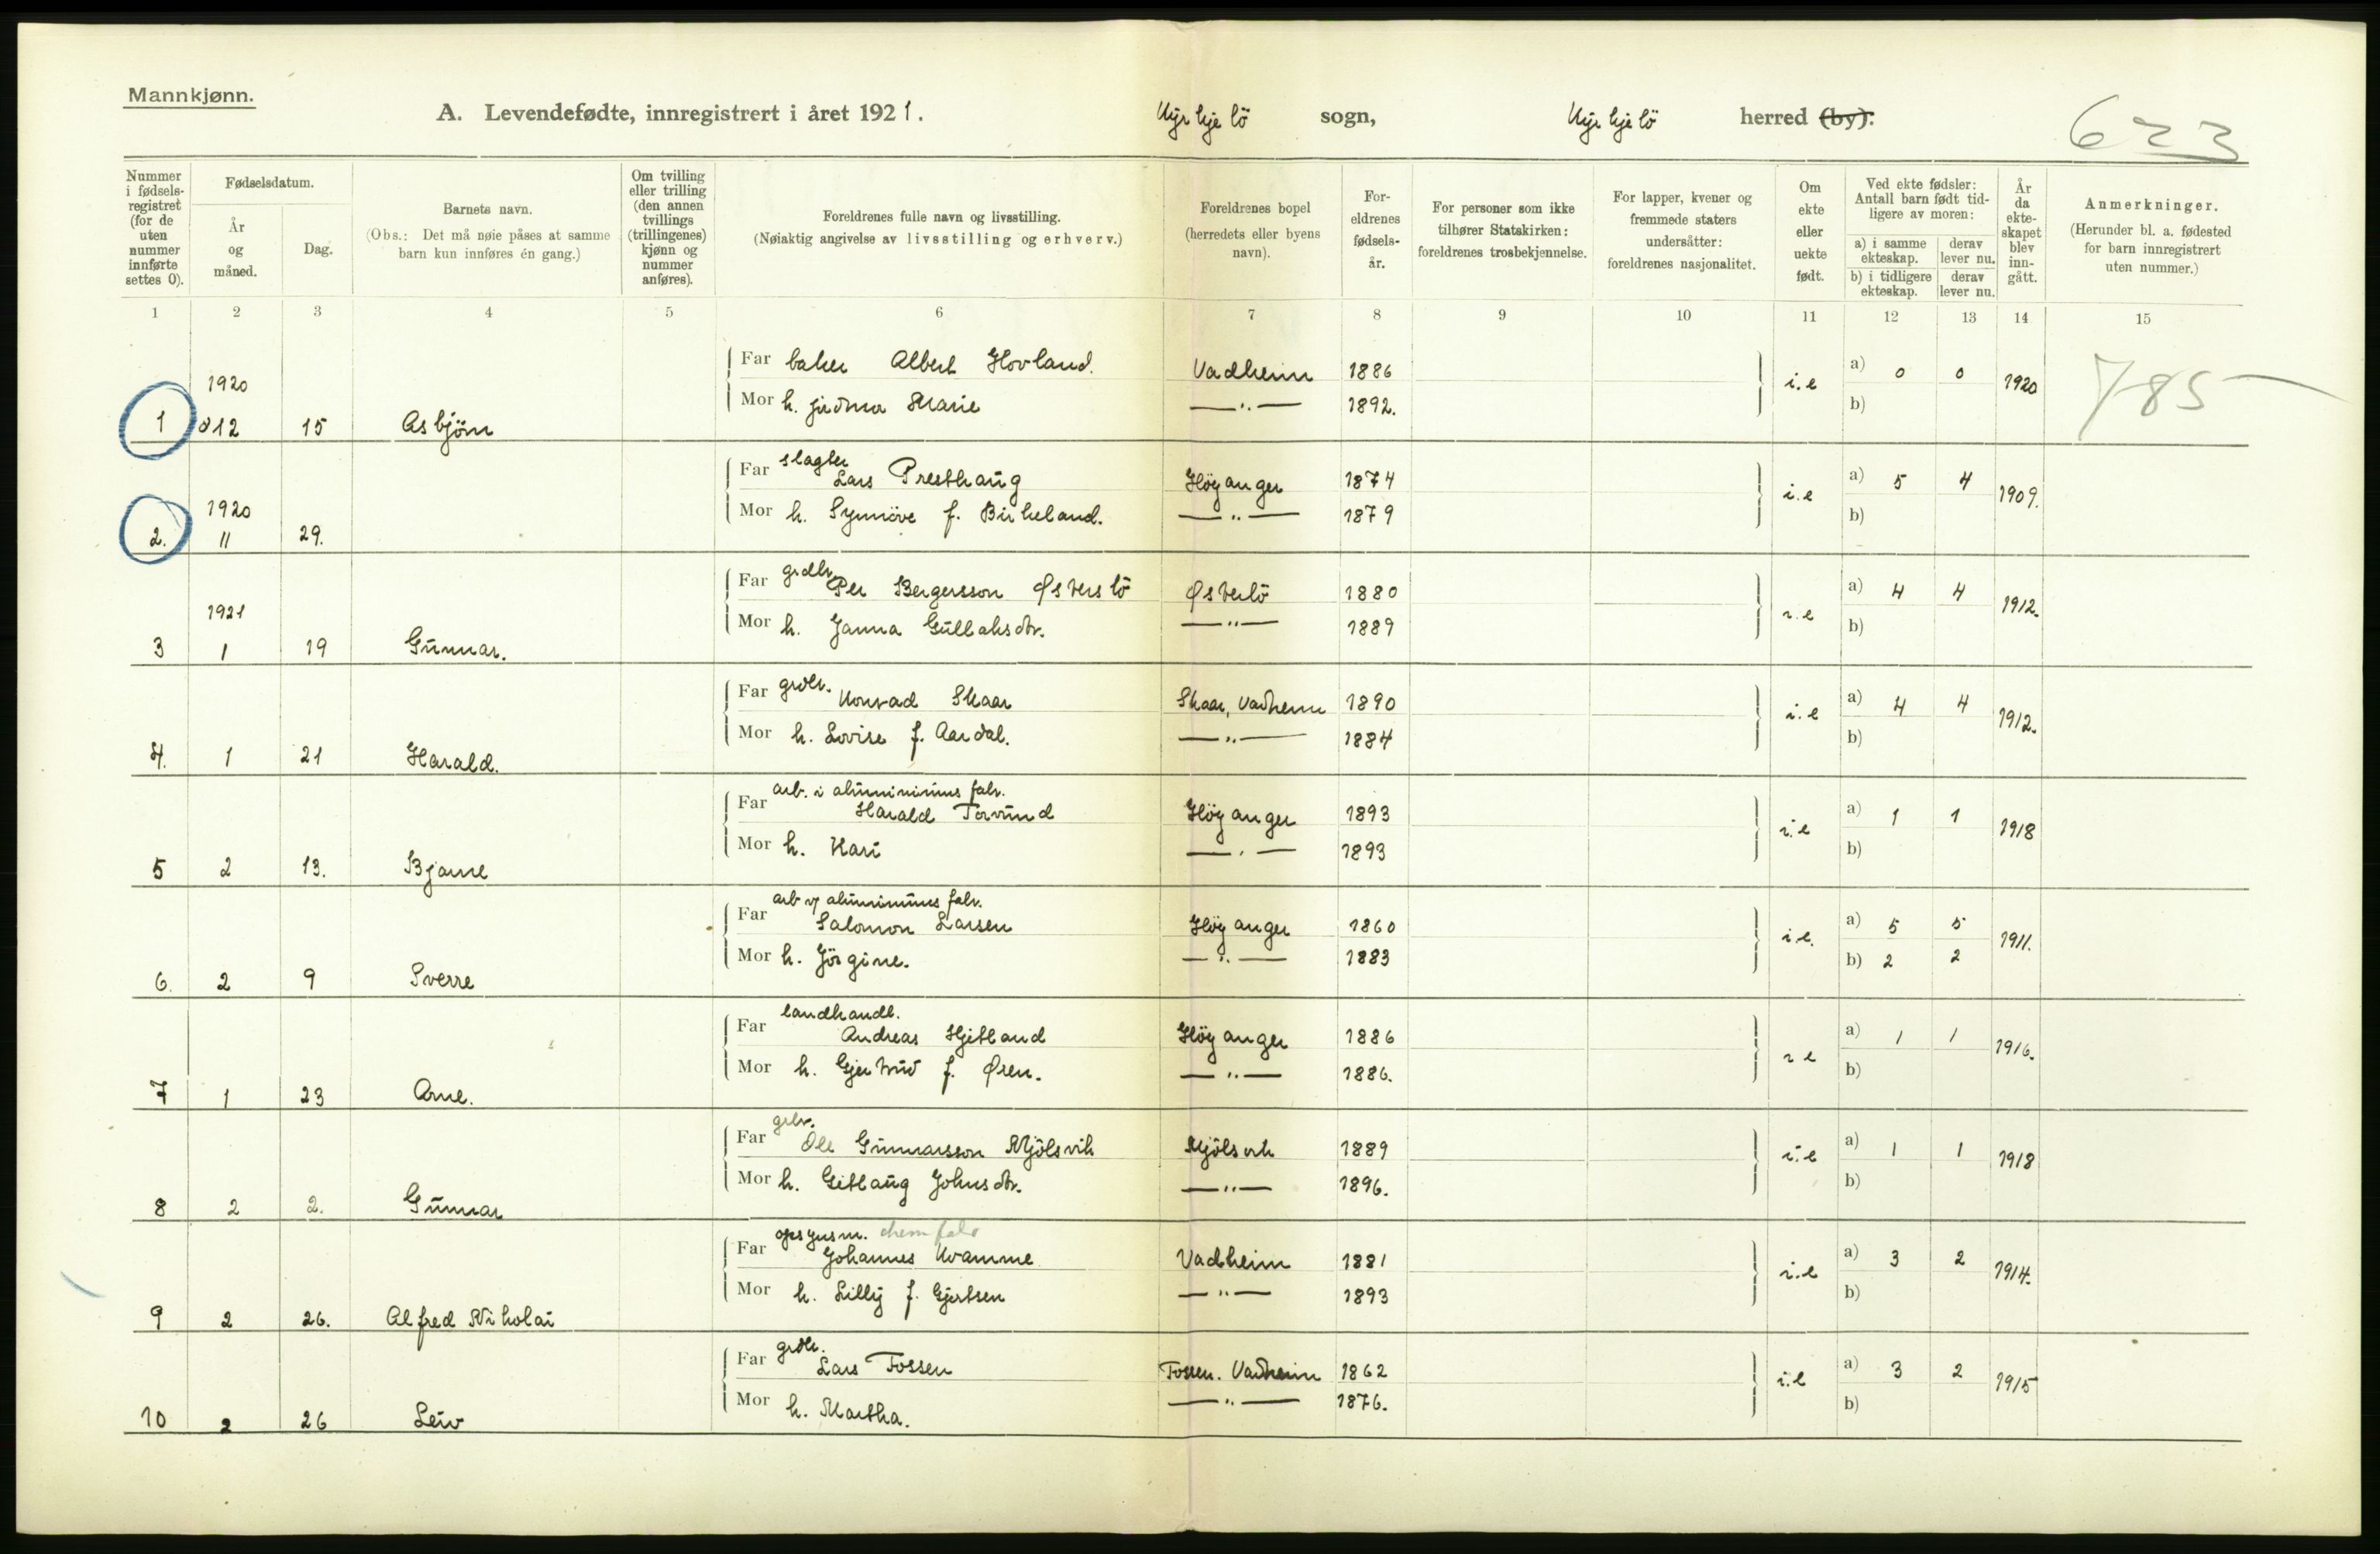 Mannkjønn.
A. Levendefødte, innregistrert i året 1921. Kyrkjebö sogn, Kyrkjebö herred (by).
623
Nummer i fødsels-registret (for de uten nummer innførte settes 0).
Fødselsdatum.
År og måned.
Dag.
Barnets navn.
(Obs.: Det må nøie påses at samme barn kun innføres én gang.)
Om tvilling eller trilling (den annen tvillings (trillingenes) kjønn og nummer anføres).
Foreldrenes fulle navn og livsstilling.
(Nøiaktig angivelse av livsstilling og erhverv.)
Foreldrenes bopel (herredets eller byens navn).
For-eldrenes fødsels-år.
For personer som ikke tilhører Statskirken: foreldrenes trosbekjennelse.
For lapper, kvener og fremmede staters undersåtter: foreldrenes nasjonalitet.
Om ekte eller uekte født.
Ved ekte fødsler: Antall barn født tid-ligere av moren:
a) i samme ekteskap.
derav lever nu.
b) i tidligere ekteskap.
derav lever nu.
År da ekte-skapet blev inn-gått.
Anmerkninger.
(Herunder bl. a. fødested for barn innregistrert uten nummer.)
1 2 3 4 5 6 7 8 9 10 11 12 13 14 15
Far baker Albert Hovland. Vadheim 1886 a) 0 0
1920 i.e 1920 785
Mor h. Marie —"— 1892. b)
1 12 15 Asbjörn
Far slagter Lars Presthaug Höyanger 1874 a) 5 4
1920 i.e 1909.
Mor h. Synnöve f. Birkeland. —"— 1879 b)
2. 11 29.
Far grdbr. Per Bergersson Østerbö Østerbö 1880 a) 4 4
1921 i.e 1912.
Mor h. Janna Gullaksdtr. —"— 1889 b)
3 1 19 Gunnar.
Far grdbr. Konrad Skaar Skaar, Vadheim 1890 a) 4 4
i.e 1912.
Mor h. Lovise f. Aardal. —"— 1884 b)
4. 1 21 Harald.
Far arb. i aluminiums fabr. Harald Torvund Höyanger 1893 a) 1 1
i.e 1918
Mor h. Kari —"— 1893 b)
5 2 13. Bjarne
Far arb v/ aluminiums fabr. Salomon Larsen Höyanger 1860 a) 5 5
i.e. 1911.
Mor h. Jörgine. —"— 1883 b) 2 2
6. 2 9 Sverre
Far landhandl. Andreas Hjetland Höyanger 1886 a) 1 1
i e 1916.
Mor h. Gjertrud f. Øren. —"— 1886. b)
7 1 23 Arne.
Far grbr. Ole Gunnarsson Mjölsvik Mjölsvik 1889 a) 1 1
i.e 1918
Mor h. Gitlaug Johnsdtr. —"— 1896. b)
8 2 2. Gunnar
Far opsynsm. chem fabr Johannes Kvamme Vadheim 1881 a) 3 2
i.e 1914.
Mor h. Lilly f. Gjertsen —"— 1893 b)
9 2 26. Alfred Nikolai
Far grdbr. Lars Fossen Fossen. Vadheim 1862 a) 3 2
i.e 1915
Mor h. Martha. —"— 1876. b)
10 2 26 Leiv